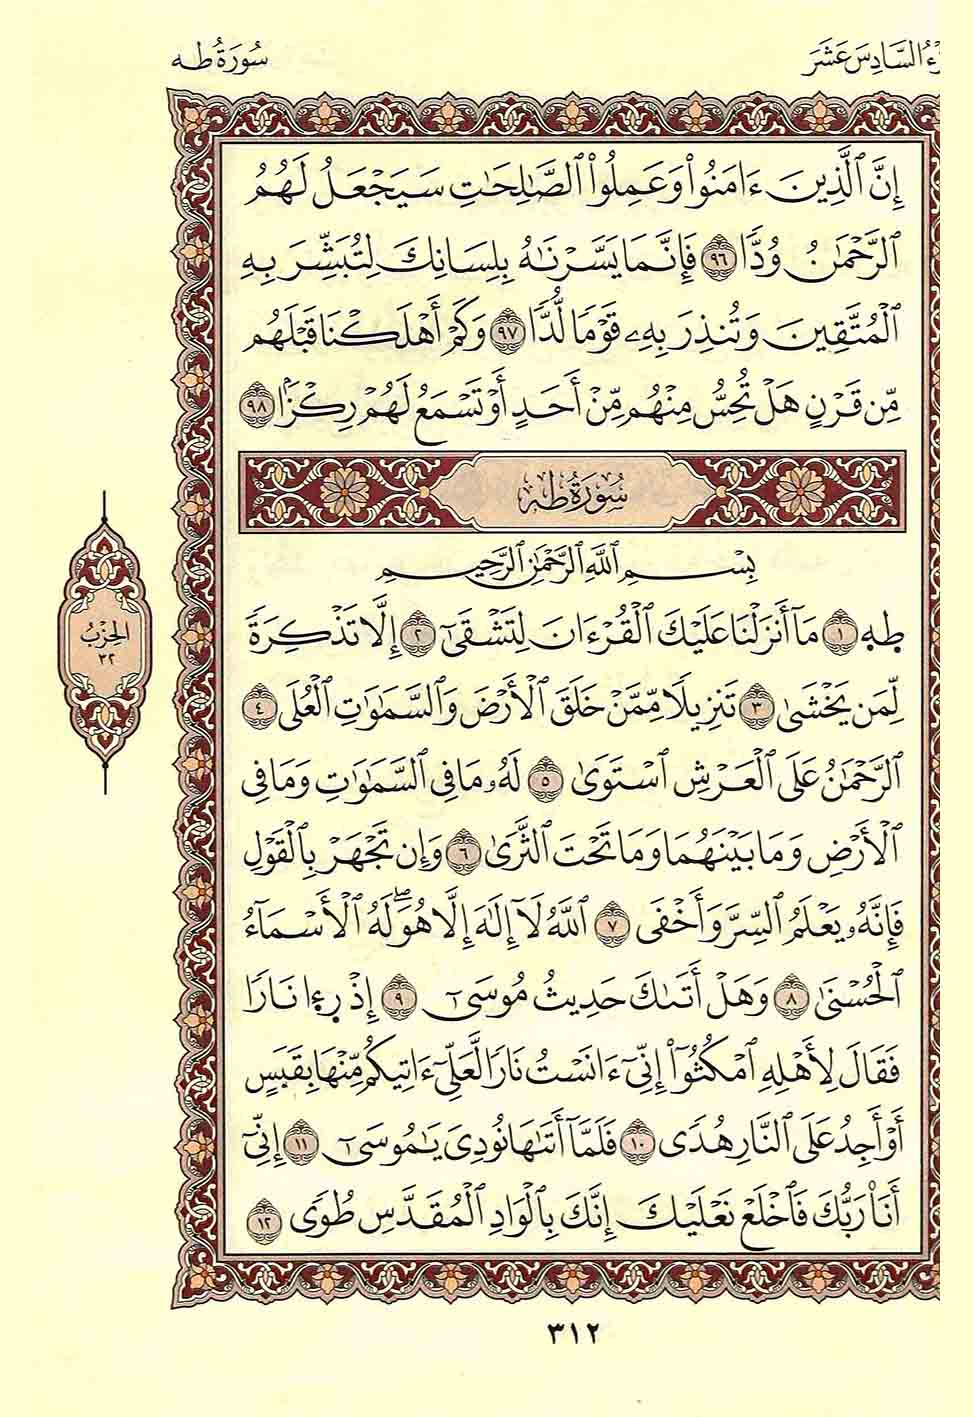 ـزْءُ السَّادِسَ عَشَرَ
سُورَةُ طه
إِنَّ ٱلَّذِينَ ءَامَنُوا۟ وَعَمِلُوا۟ ٱلصَّٰلِحَٰتِ سَيَجْعَلُ لَهُمُ
ٱلرَّحْمَٰنُ وُدًّا ٩٦ فَإِنَّمَا يَسَّرْنَٰهُ بِلِسَانِكَ لِتُبَشِّرَ بِهِ
ٱلْمُتَّقِينَ وَتُنذِرَ بِهِۦ قَوْمًا لُّدًّا ٩٧ وَكَمْ أَهْلَكْنَا قَبْلَهُم
مِّن قَرْنٍ هَلْ تُحِسُّ مِنْهُم مِّنْ أَحَدٍ أَوْ تَسْمَعُ لَهُمْ رِكْزًۢا ٩٨
سُورَةُ طه
بِسْمِ ٱللَّهِ ٱلرَّحْمَٰنِ ٱلرَّحِيمِ
طه ١ مَآ أَنزَلْنَا عَلَيْكَ ٱلْقُرْءَانَ لِتَشْقَىٰٓ ٢ إِلَّا تَذْكِرَةً
لِّمَن يَخْشَىٰ ٣ تَنزِيلًا مِّمَّنْ خَلَقَ ٱلْأَرْضَ وَٱلسَّمَٰوَٰتِ ٱلْعُلَى ٤
ٱلرَّحْمَٰنُ عَلَى ٱلْعَرْشِ ٱسْتَوَىٰ ٥ لَهُۥ مَا فِى ٱلسَّمَٰوَٰتِ وَمَا فِى
ٱلْأَرْضِ وَمَا بَيْنَهُمَا وَمَا تَحْتَ ٱلثَّرَىٰ ٦ وَإِن تَجْهَرْ بِٱلْقَوْلِ
فَإِنَّهُۥ يَعْلَمُ ٱلسِّرَّ وَأَخْفَى ٧ ٱللَّهُ لَآ إِلَٰهَ إِلَّا هُوَۖ لَهُ ٱلْأَسْمَآءُ
ٱلْحُسْنَىٰ ٨ وَهَلْ أَتَىٰكَ حَدِيثُ مُوسَىٰٓ ٩ إِذْ رَءَا نَارًا
فَقَالَ لِأَهْلِهِ ٱمْكُثُوٓا۟ إِنِّىٓ ءَانَسْتُ نَارًا لَّعَلِّىٓ ءَاتِيكُم مِّنْهَا بِقَبَسٍ
أَوْ أَجِدُ عَلَى ٱلنَّارِ هُدًى ١٠ فَلَمَّآ أَتَىٰهَا نُودِىَ يَٰمُوسَىٰٓ ١١ إِنِّىٓ
أَنَا۠ رَبُّكَ فَٱخْلَعْ نَعْلَيْكَ إِنَّكَ بِٱلْوَادِ ٱلْمُقَدَّسِ طُوًى ١٢
الحِزْبُ
٣٢
٣١٢